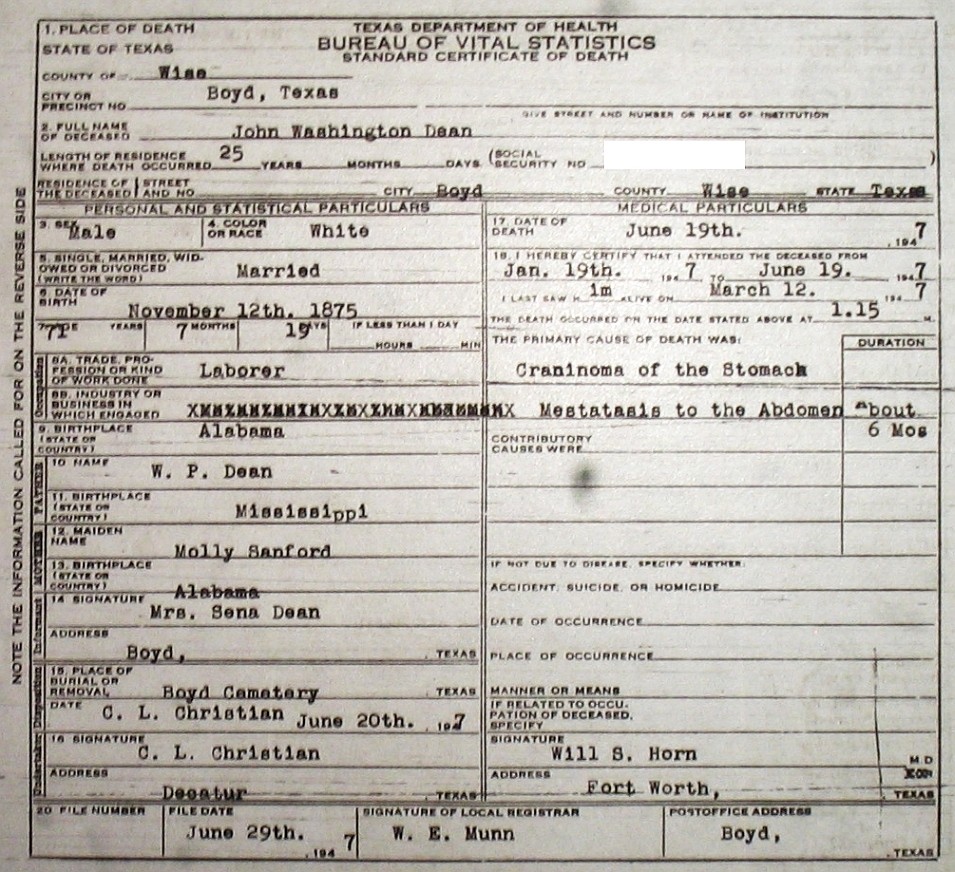 TEXAS DEPARTMENT OF HEALTH
BUREAU OF VITAL STATISTICS
STANDARD CERTIFICATE OF DEATH
1. PLACE OF DEATH
STATE OF TEXAS
COUNTY OF Wise
CITY OR PRECINCT NO. Boyd, Texas
GIVE STREET AND NUMBER OR NAME OF INSTITUTION
2. FULL NAME OF DECEASED John Washington Dean
LENGTH OF RESIDENCE WHERE DEATH OCCURRED 25 YEARS MONTHS DAYS (SOCIAL SECURITY NO )
RESIDENCE OF THE DECEASED STREET AND NO CITY Boyd COUNTY Wise STATE Texas
PERSONAL AND STATISTICAL PARTICULARS
3. SEX Male
4. COLOR OR RACE White
5. SINGLE, MARRIED, WIDOWED OR DIVORCED (WRITE THE WORD) Married
6. DATE OF BIRTH November 12th. 1875
YEARS 7 MONTHS 19 DAYS IF LESS THAN 1 DAY HOURS MIN
Occupation
8A. TRADE, PROFESSION OR KIND OF WORK DONE Laborer
8B. INDUSTRY OR BUSINESS IN WHICH ENGAGED
9. BIRTHPLACE (STATE OR COUNTRY) Alabama
FATHER
10 NAME W. P. Dean
11. BIRTHPLACE (STATE OR COUNTRY) Mississippi
MOTHER
12. MAIDEN NAME Molly Sanford
13. BIRTHPLACE (STATE OR COUNTRY) Alabama
Informant
14 SIGNATURE Mrs. Sena Dean
ADDRESS Boyd, TEXAS
Disposition
15. PLACE OF BURIAL OR REMOVAL Boyd Cemetery TEXAS
DATE C. L. Christian June 20th. 1947
Undertaker
16 SIGNATURE C. L. Christian
ADDRESS Decatur TEXAS
MEDICAL PARTICULARS
17. DATE OF DEATH June 19th. , 1947
18. I HEREBY CERTIFY THAT I ATTENDED THE DECEASED FROM
Jan. 19th. 1947 TO June 19. 1947
I LAST SAW H im ALIVE ON March 12. 1947
THE DEATH OCCURRED ON THE DATE STATED ABOVE AT 1.15 M.
THE PRIMARY CAUSE OF DEATH WAS: DURATION
Craninoma of the Stomach
Mestatasis to the Abdomen About
6 Mos
CONTRIBUTORY CAUSES WERE
IF NOT DUE TO DISEASE, SPECIFY WHETHER:
ACCIDENT, SUICIDE, OR HOMICIDE
DATE OF OCCURRENCE
PLACE OF OCCURRENCE
MANNER OR MEANS
IF RELATED TO OCCUPATION OF DECEASED, SPECIFY
SIGNATURE Will S. Horn M.D
ADDRESS Fort Worth, TEXAS
20 FILE NUMBER
FILE DATE June 29th. , 1947
SIGNATURE OF LOCAL REGISTRAR W. E. Munn
POSTOFFICE ADDRESS Boyd, , TEXAS
NOTE THE INFORMATION CALLED FOR ON THE REVERSE SIDE